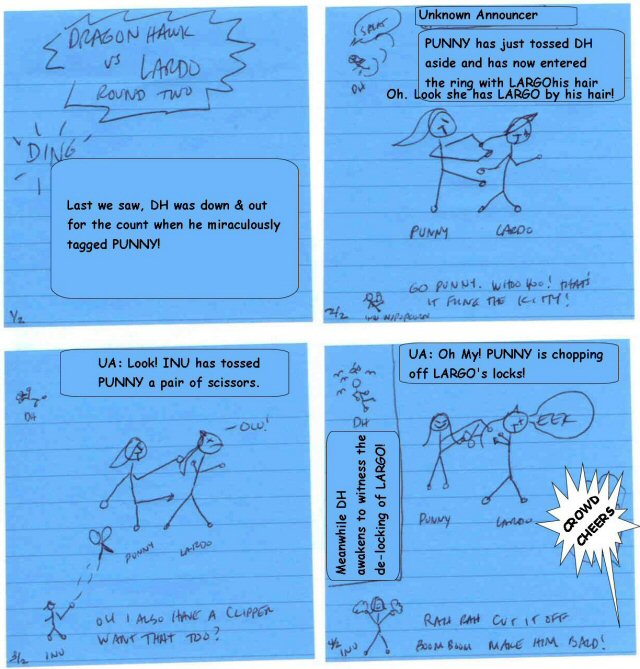 DRAGON HAWK
VS
LARDO
ROUND TWO
DING
Last we saw, DH was down & out
for the count when he miraculously
tagged PUNNY!
1/2
Unknown Announcer
SPLAT
DH
PUNNY has just tossed DH
aside and has now entered
the ring with LARGOhis hair
Oh. Look she has LARGO by his hair!
PUNNY
LARDO
GO PUNNY. WHOO HOO! THAT'S
IT FLING THE KITTY!
2/2
UA: Look! INU has tossed
PUNNY a pair of scissors.
DH
OW!
PUNNY
LARDO
OH I ALSO HAVE A CLIPPER
WANT THAT TOO?
3/2
INU
UA: Oh My! PUNNY is chopping
off LARGO's locks!
DH
EEK
Meanwhile DH
awakens to witness the
de-locking of LARGO!
PUNNY
LARDO
CROWD
CHEERS
RAH RAH CUT IT OFF
BOOM BOOM MAKE HIM BALD!
4/2
INU